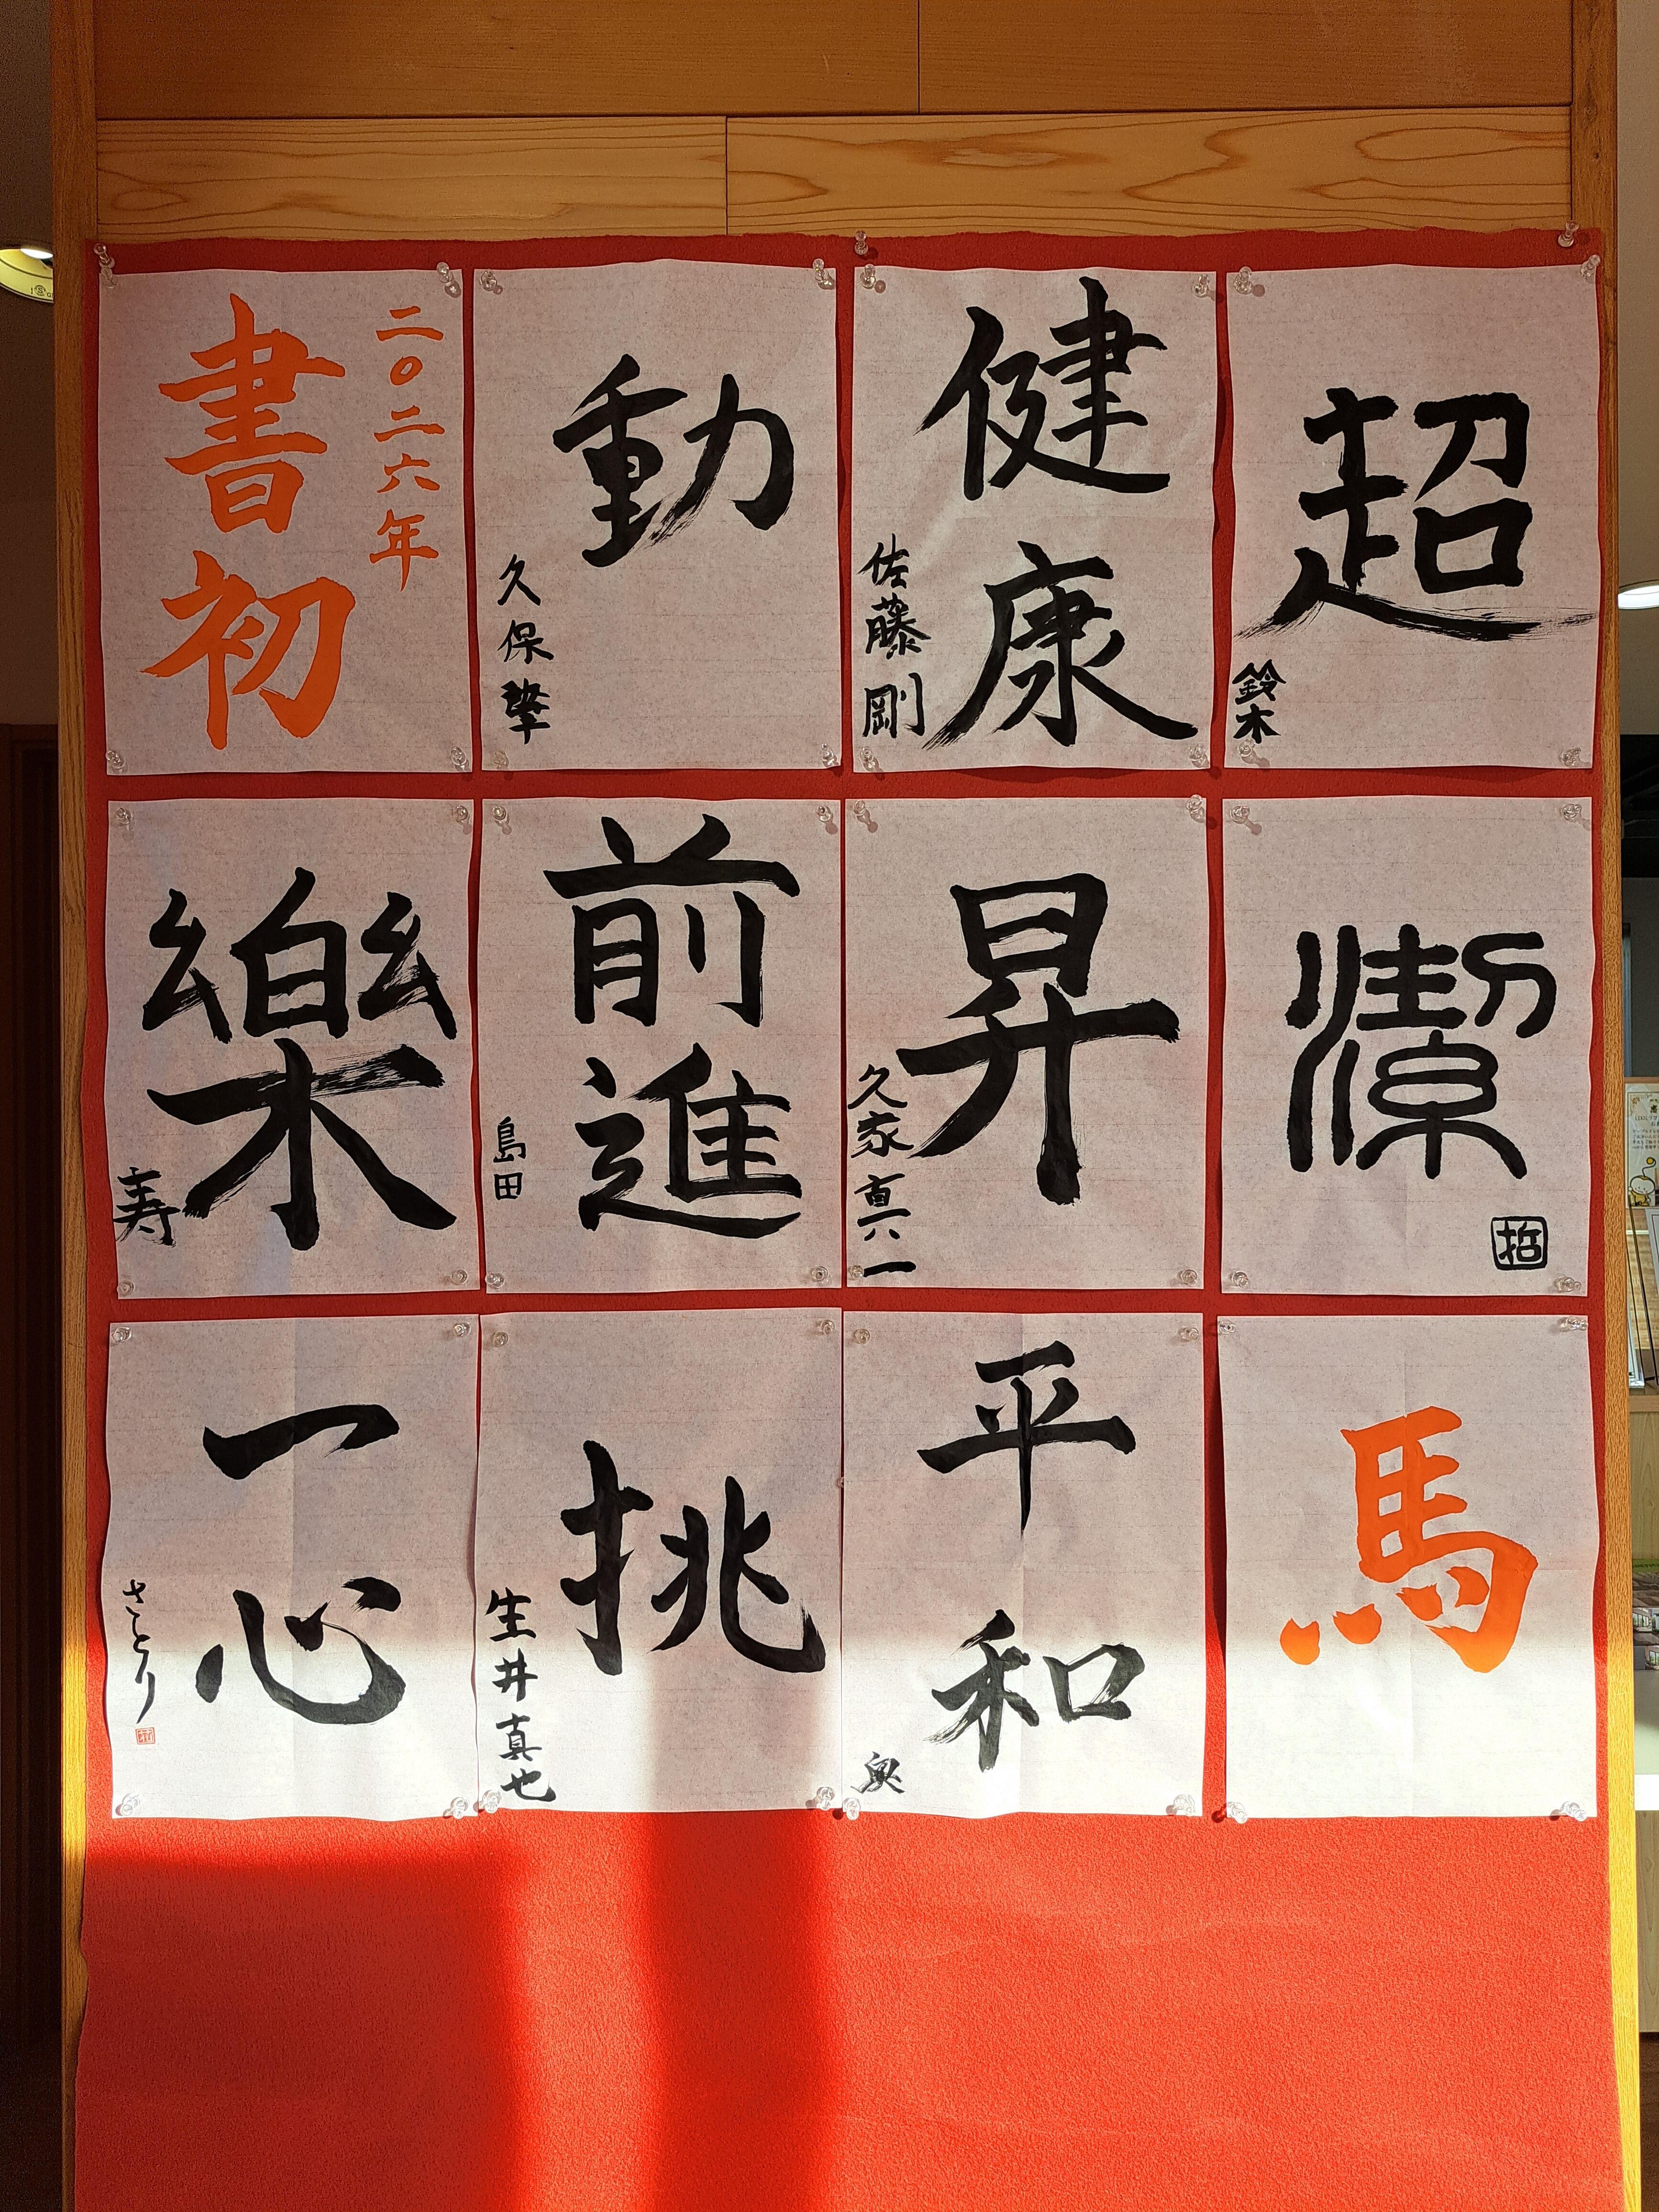 二〇二六年
書初
動
久保肇
健康
佐藤剛
超
鈴木
樂
寿
前進
島田
昇
久家真一
潔
哲
一心
さとり
挑
生井真也
平和
馬